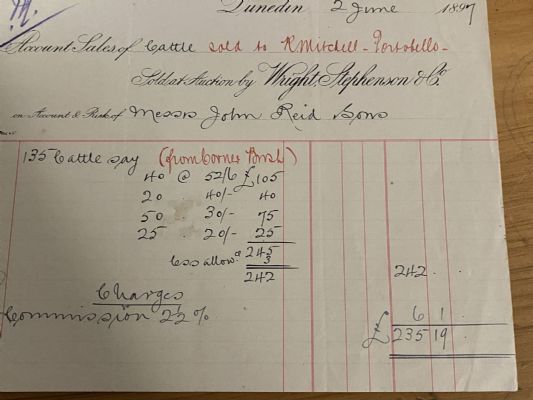 M.
Dunedin 2 June 1897
Account Sales of Cattle sold to R Mitchell - Portobello -
Sold at Auction by Wright, Stephenson & Co
on Account & Risk of Messrs John Reid Sons
135 Cattle say (from Corner Bush)
40 @ 52/6 £105
20 40/- 40
50 30/- 75
25 20/- 25
245
Less allowce 3
242 242
Charges
Commission 2½ % 6 1
£ 235 19